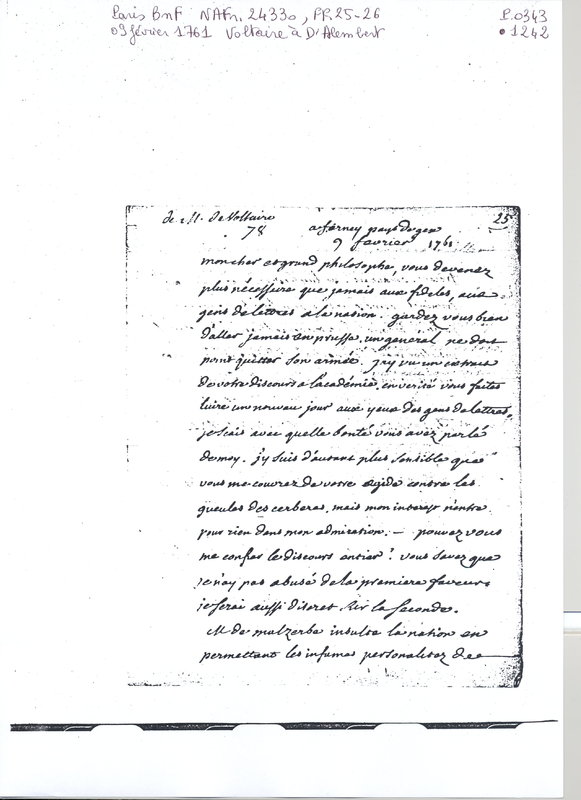 Paris BnF NAFr. 24330, PP. 25-26
P.0343
09 février 1761 Voltaire à D'Alembert
• 1242
de M. de Voltaire
25
78
a ferney pays de gex
9 fevrier 1761
mon cher et grand philosophe, vous devenez
plus nécessaire que jamais aux fideles, aux
gens de lettres a la nation. gardez vous bien
d'aller jamais en prusse. un general ne doit
point quitter son armée. j'ay vu un extrait
de votre discours a l'académie, en verité vous faites
luire un nouveau jour aux yeux des gens de lettres,
je scais avec quelle bonté vous avez parlé
de moy. j'y suis d'autant plus sensible que
vous me couvrez de votre egide contre les
gueules des cerberes, mais mon interest n'entre
pour rien dans mon admiration. — pouvez vous
me confier le discours entier ? vous savez que
je n'ay pas abusé de la premiere faveur
je serai aussi discret sur la seconde.
M de malzerbe insulte la nation en
permettant les infames personalitez de